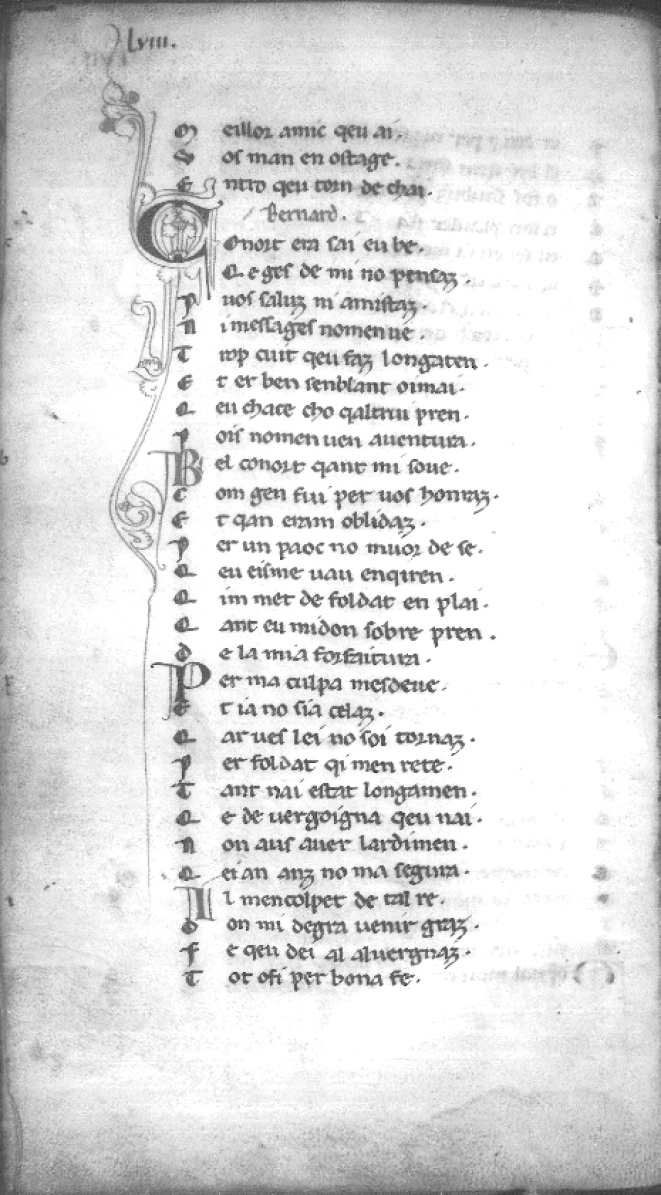 Lviii.
M eillor amic qeu ai.
V os man en ostage.
E ntro qeu torn de chai.
Bernard.
Conort era sai eu be.
Q e ges de mi no pensaz
P uos saluz ni amistaz.
N i messages nomenue.
T rop cuit qeu faz longaten.
E t er ben senblant oimai.
Q eu chace cho qaltrui pren.
P ois nomen uen auentura.
Bel conort qant mi soue.
C om gen fui per uos honraz.
E t qan eram oblidaz.
P er un paoc no muor de se.
Q eu eisme uau enqiren.
Q im met de foldat en plai.
Q ant eu midon sobre pren.
D e la mia forfaitura.
Per ma culpa mesdeue.
E t ia no sia celaz.
Q ar ues lei no soi tornaz.
P er foldat qi men rete.
T ant nai estat longamen.
Q e de uergoigna qeu nai.
N on aus auer lardimen.
Q ei an anz no ma segura.
Il mencolpet de tal re.
D on mi degra uenir graz.
F e qeu dei al aluergnaz.
T ot ofi per bona fe.